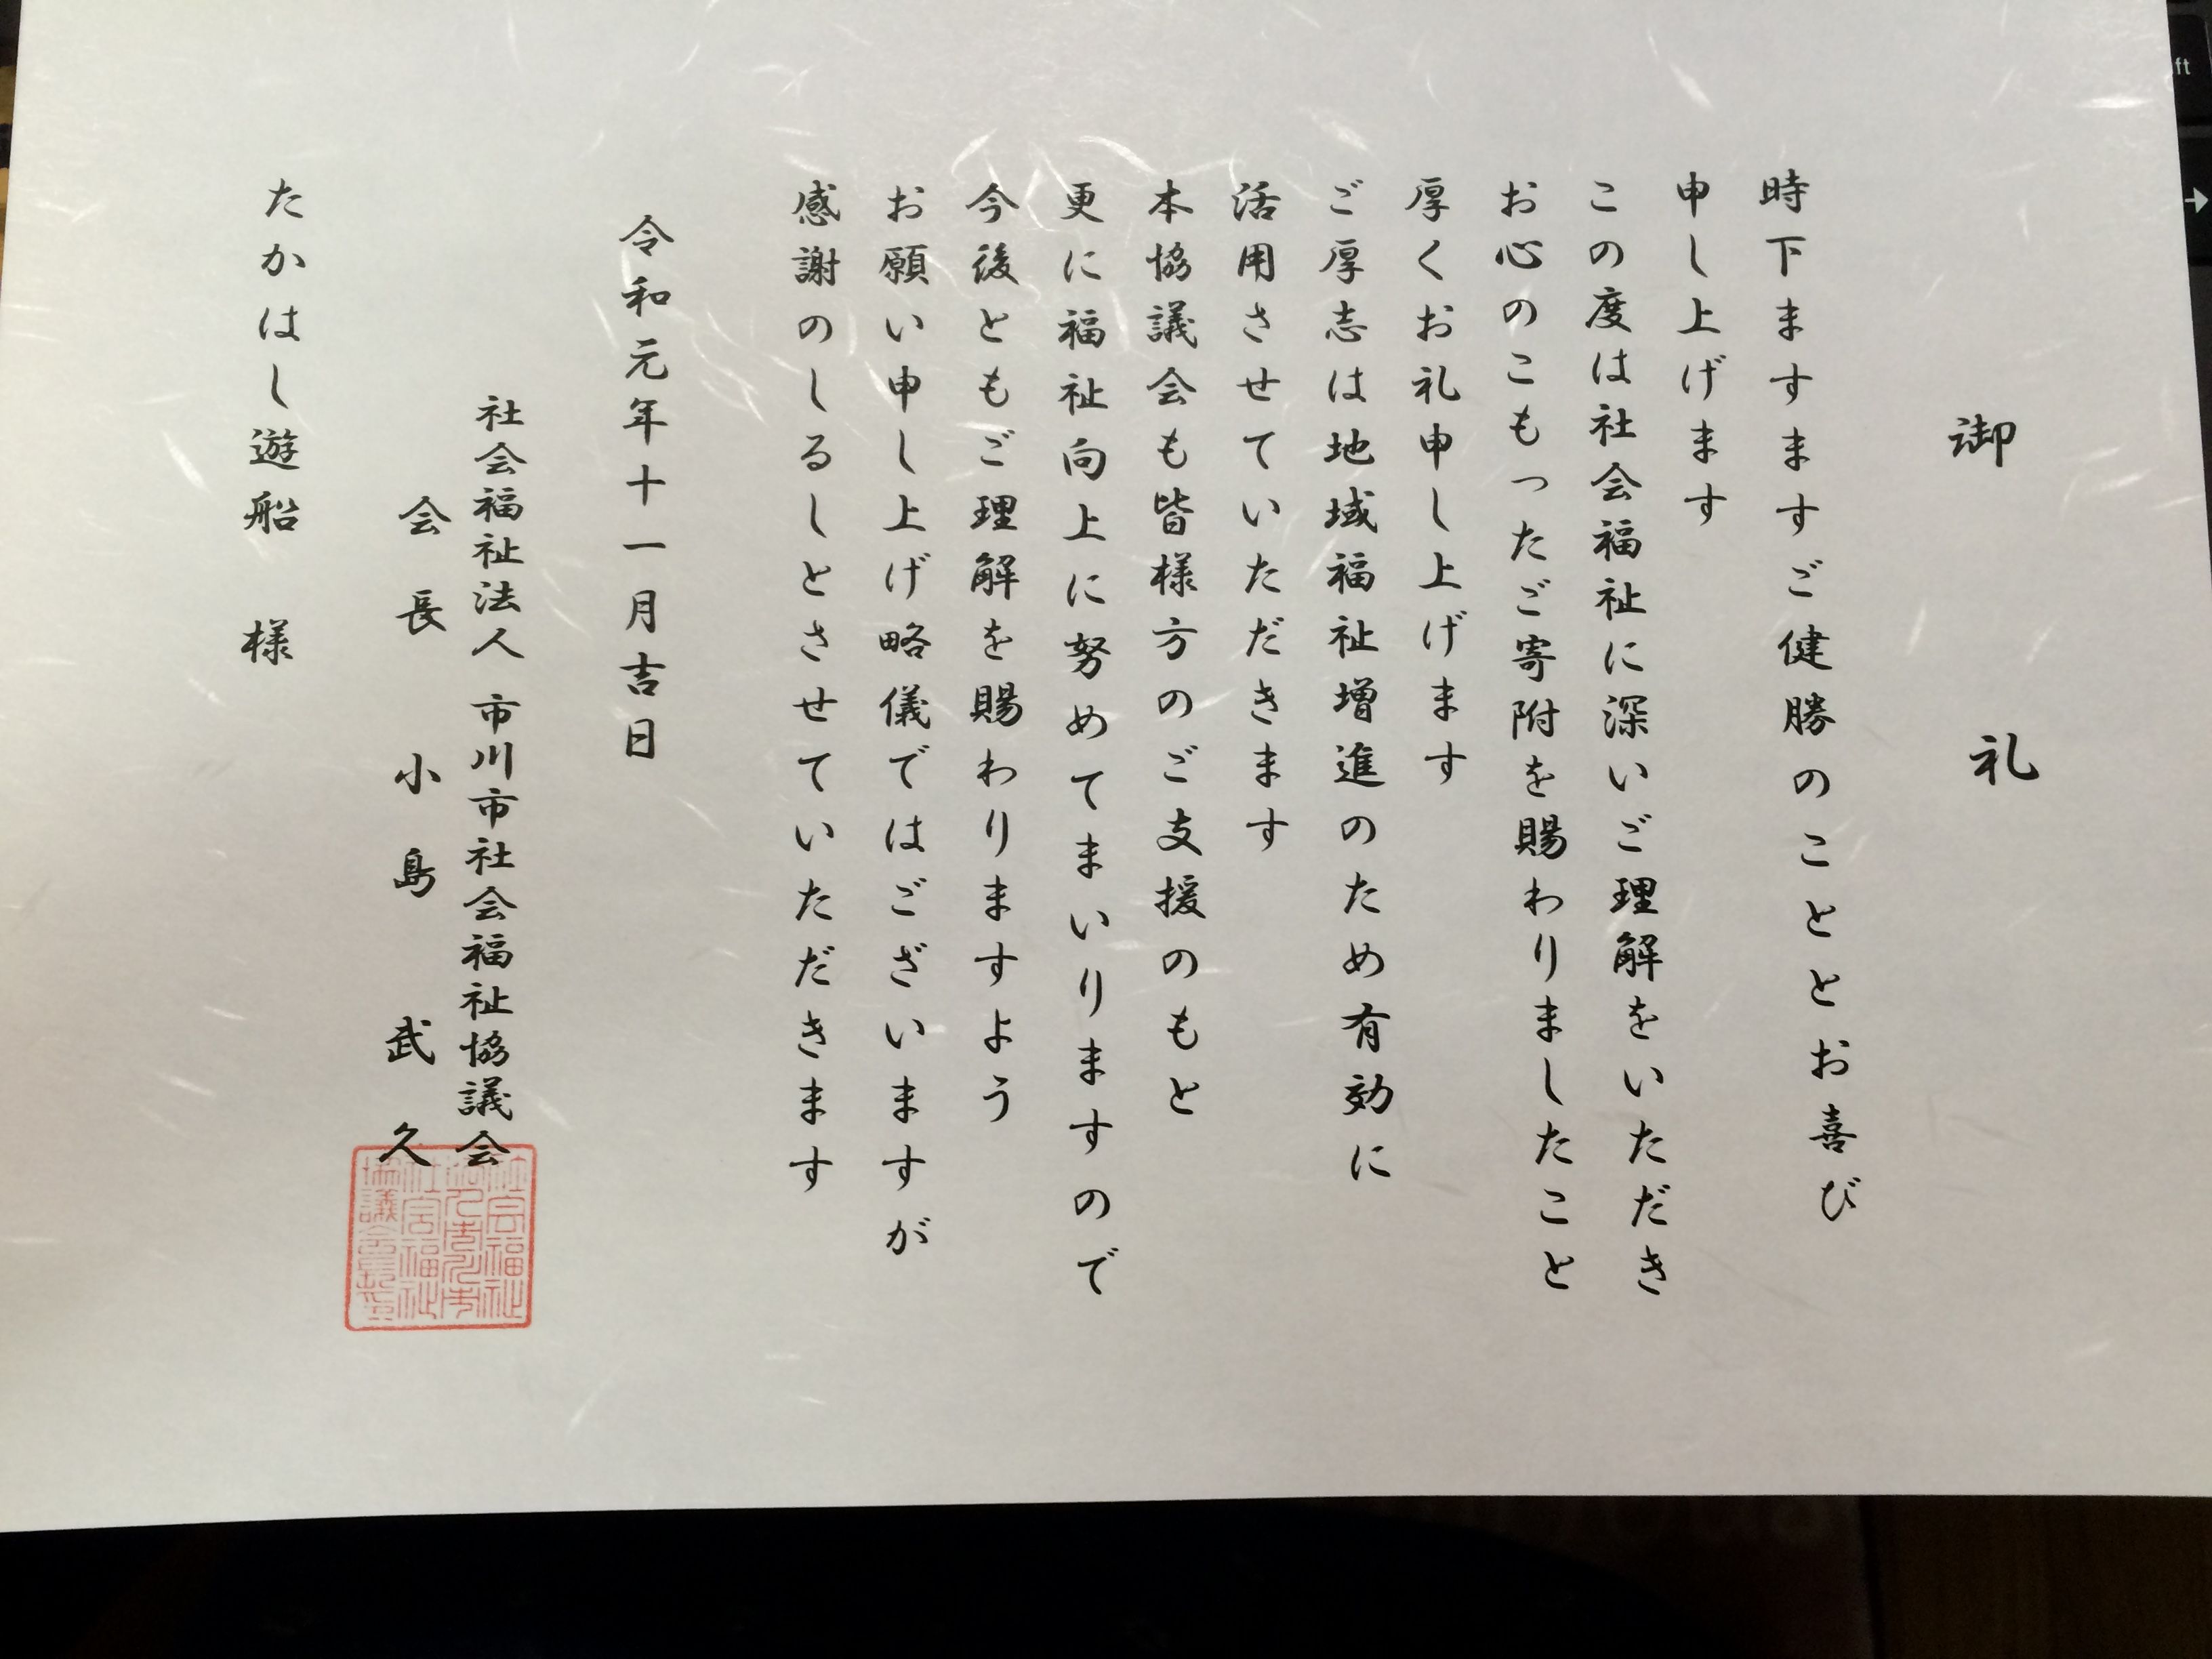 御礼
時下ますますご健勝のこととお喜び
申し上げます
この度は社会福祉に深いご理解をいただき
お心のこもったご寄附を賜わりましたこと
厚くお礼申し上げます
ご厚志は地域福祉増進のため有効に
活用させていただきます
本協議会も皆様方のご支援のもと
更に福祉向上に努めてまいりますので
今後ともご理解を賜わりますよう
お願い申し上げ略儀ではございますが
感謝のしるしとさせていただきます
令和元年十一月吉日
社会福祉法人 市川市社会福祉協議会
会長 小島 武久
たかはし遊船 様
ft
→